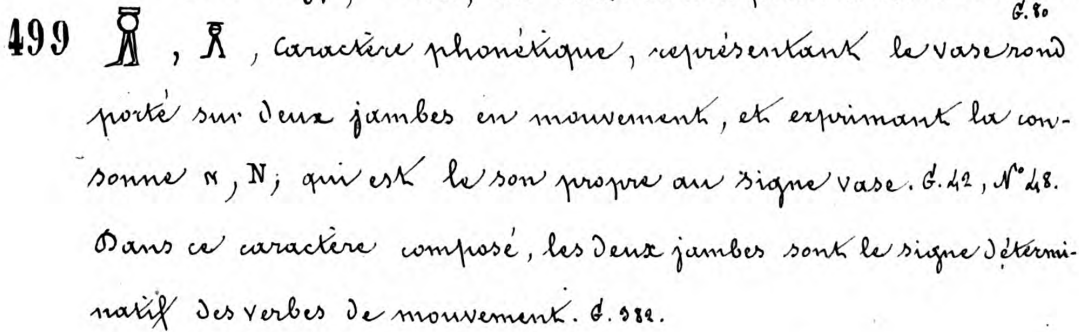 G. 80
499 𓏎, 𓏎, caractère phonétique, représentant le vase rond
porté sur deux jambes en mouvement, et exprimant la con-
sonne ⲛ, N; qui est le son propre au signe vase. G. 42, N° 48.
Dans ce caractère composé, les deux jambes sont le signe détermi-
natif des verbes de mouvement. G. 382.